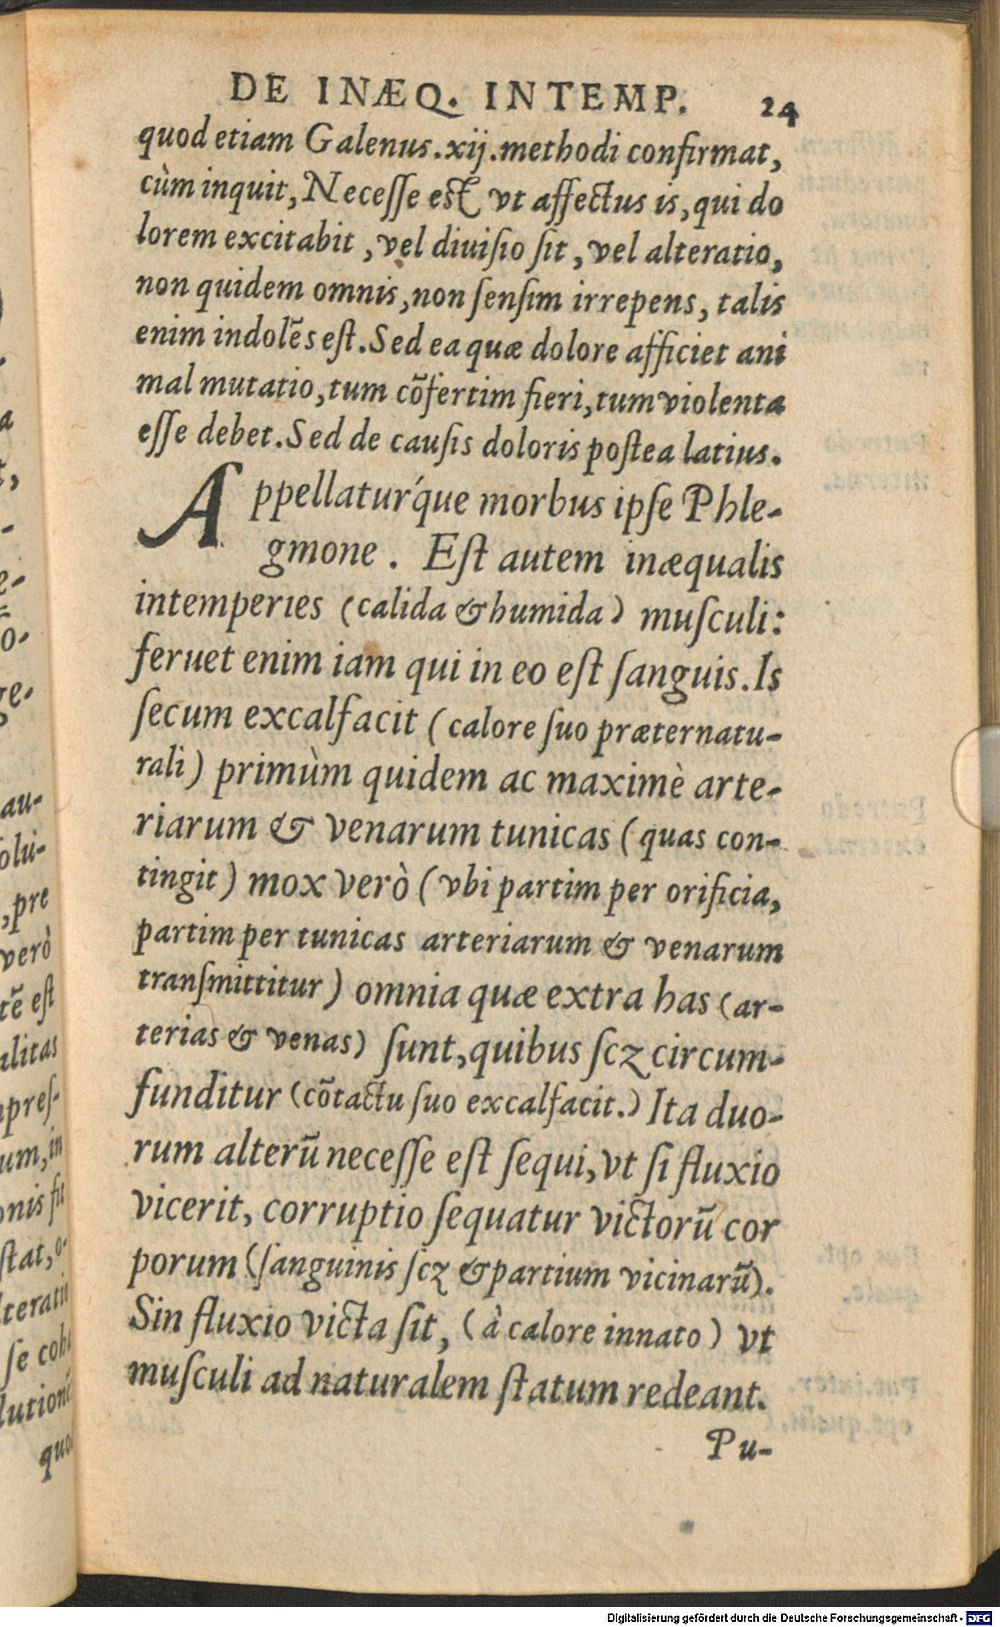 DE INÆQ. INTEMP. 24
quod etiam Galenus.xij.methodi confirmat,
cùm inquit, Neceſſe eſt vt affectus is, qui do
lorem excitabit, vel diuiſio ſit, vel alteratio,
non quidem omnis, non ſenſim irrepens, talis
enim indolẽs eſt. Sed ea quæ dolore afficiet ani
mal mutatio, tum cõfertim fieri, tum violenta
eſſe debet. Sed de cauſis doloris poſtea latius.
Appellatuŕque morbus ipſe Phle-
gmone. Eſt autem inæqualis
intemperies (calida & humida) muſculi:
feruet enim iam qui in eo eſt ſanguis. Is
ſecum excalfacit (calore ſuo præternatu-
rali) primùm quidem ac maximè arte-
riarum & venarum tunicas (quas con-
tingit) mox verò (vbi partim per orificia,
partim per tunicas arteriarum & venarum
tranſmittitur) omnia quæ extra has (ar-
terias & venas) ſunt, quibus ſcꝫ circum-
funditur (cõtactu ſuo excalfacit.) Ita duo-
rum alterũ neceſſe eſt ſequi, vt ſi fluxio
vicerit, corruptio ſequatur victorũ cor
porum (ſanguinis ſcꝫ & partium vicinarũ).
Sin fluxio victa ſit, (à calore innato) vt
muſculi ad naturalem ſtatum redeant.
Pu-
au-
olu-
,pre
verò
tẽ eſt
alitas
preſ-
um, in
onis ſit
ſtat, o-
ſe coh
quo
Digitalisierung gefördert durch die Deutsche Forschungsgemeinschaft - DFG